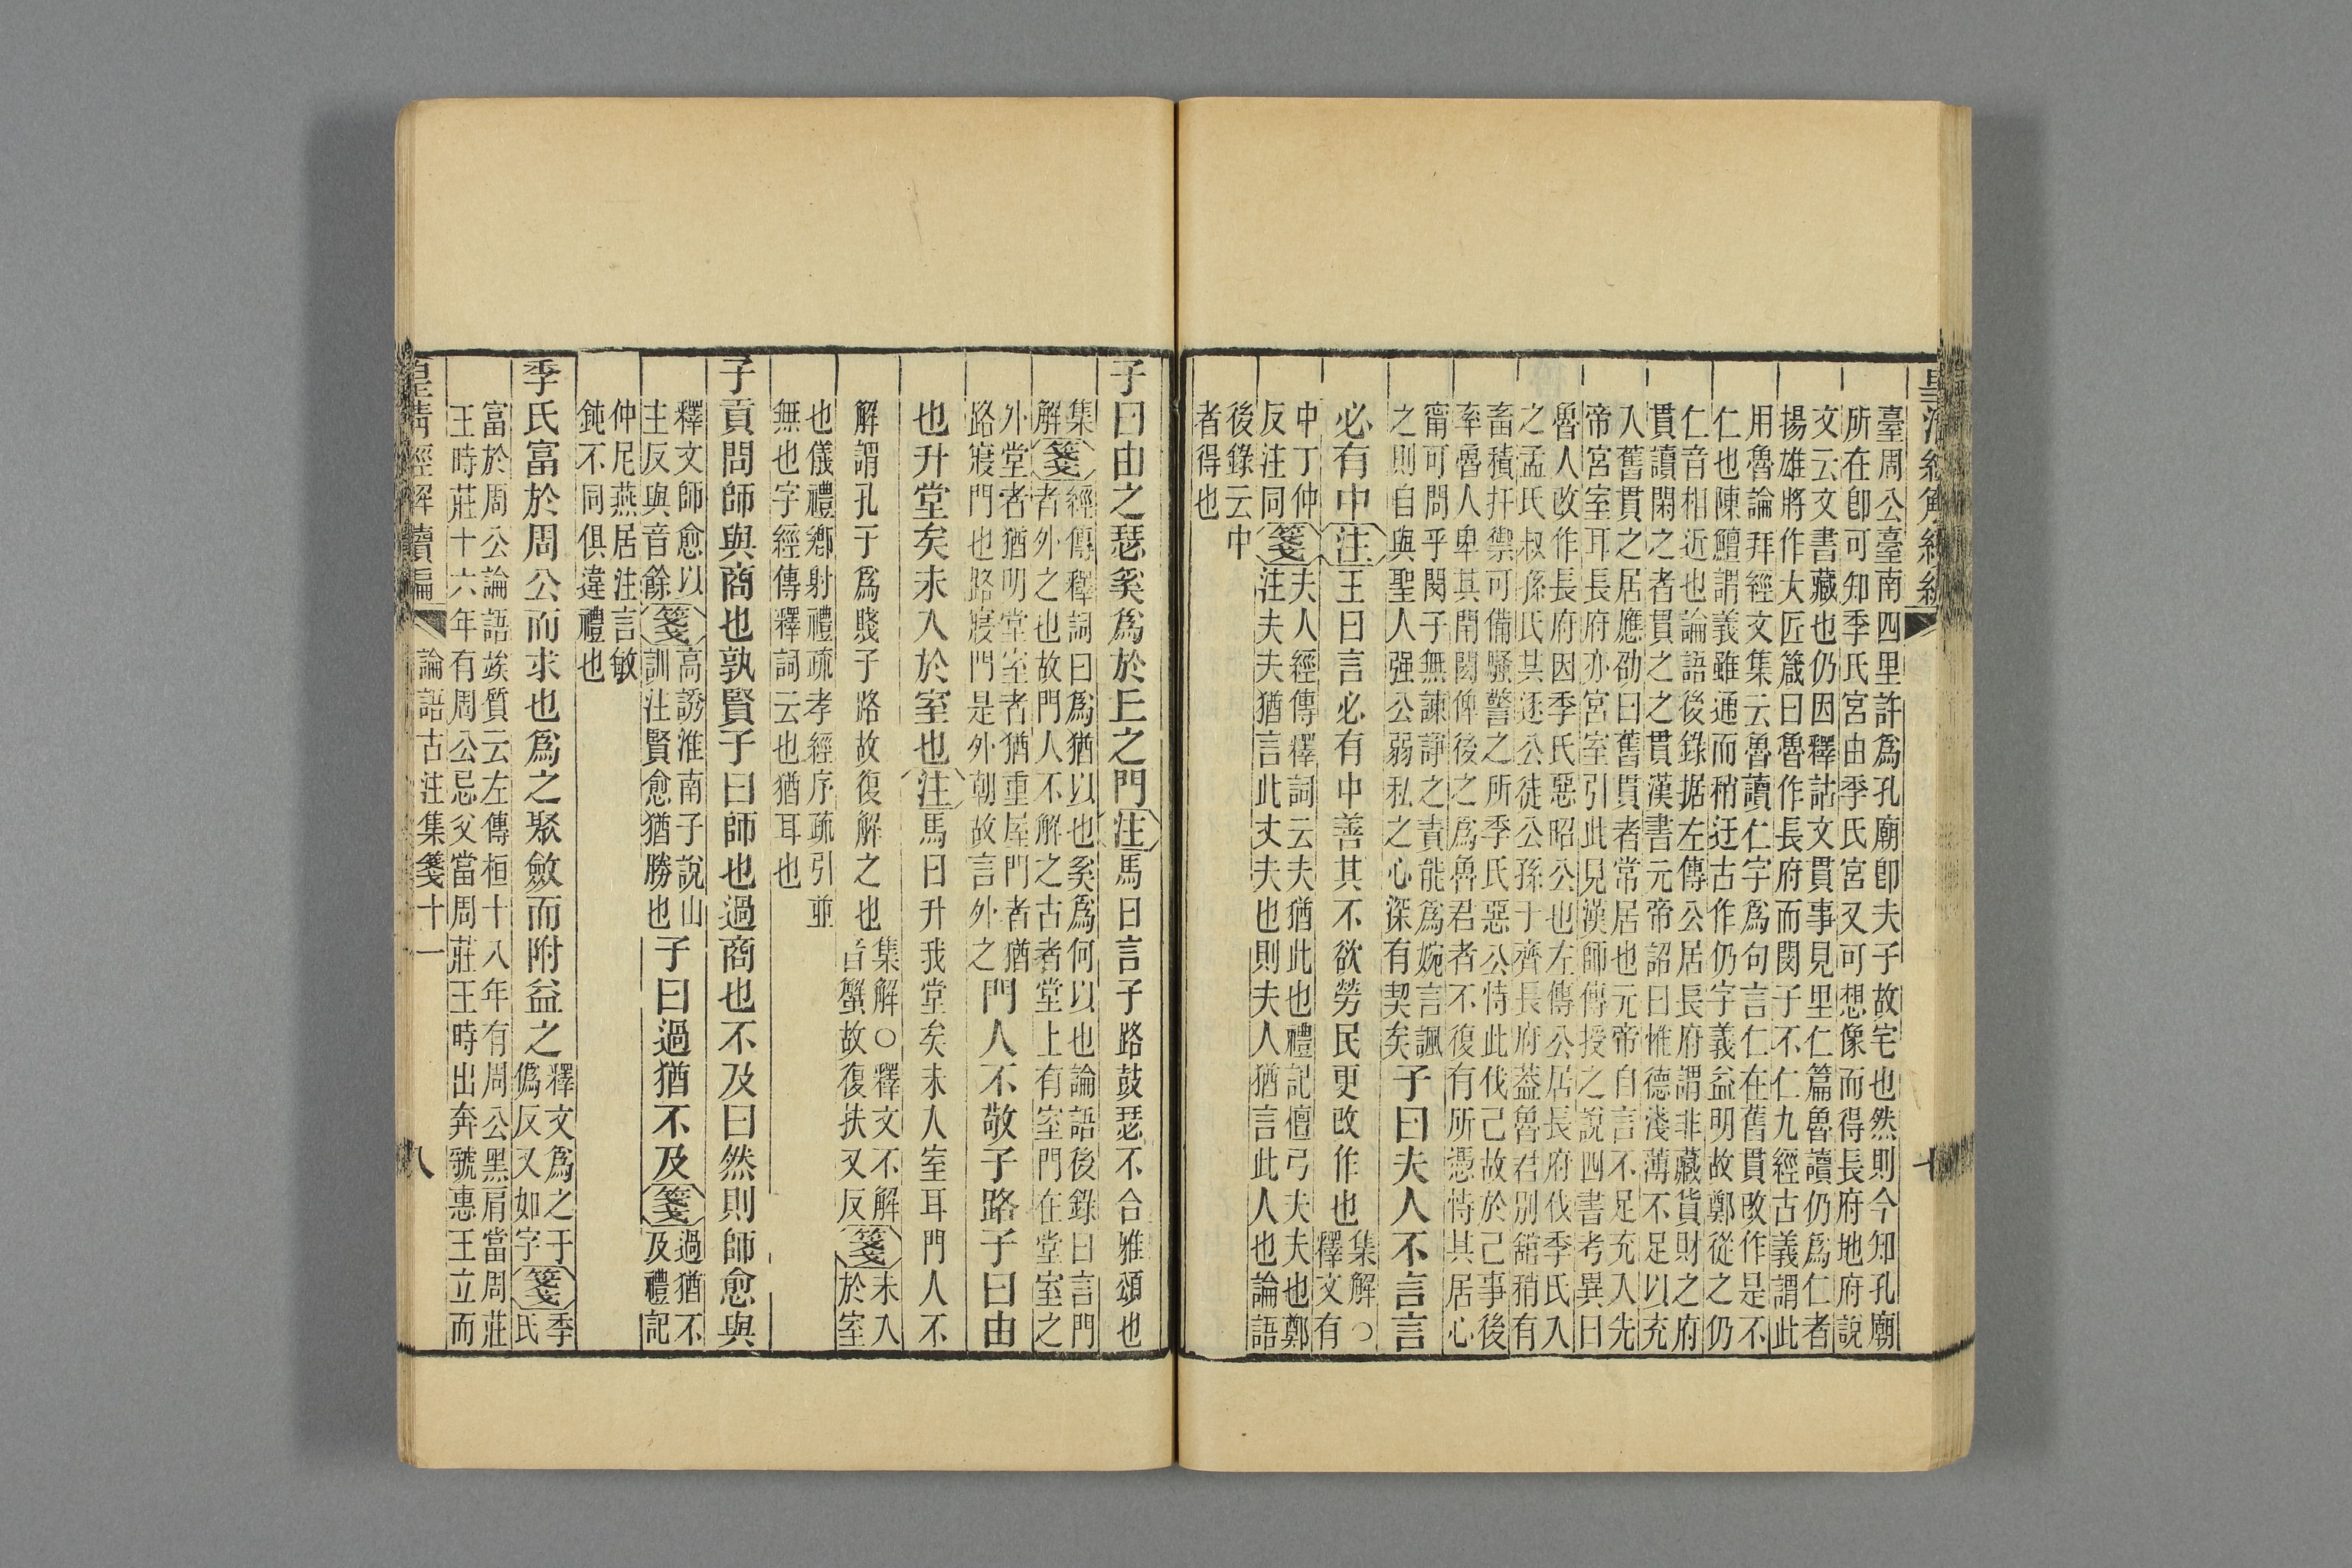 皇清經解續編
臺周公臺南四里許爲孔廟卽夫子故宅也然則今知孔廟
所在卽可知季氏宮由季氏宮又可想像而得長府地府說
文云文書藏也仍因釋詁文貫事見里仁篇魯讀仍爲仁者
揚雄將作大匠箴曰魯作長府而閔子不仁九經古義謂此
用魯論拜經文集云魯讀仁字爲句言仁在舊貫改作是不
仁也陳鱣謂義雖通而稍迂古作仍字義益明故鄭從之仍
仁音相近也論語後錄据左傳公居長府謂非藏貨財之府
貫讀閑之者貫之之貫漢書元帝詔曰惟德淺薄不足以充
入舊貫之居應劭曰舊貫者常居也元帝自言不足充入先
帝宮室耳長府亦宮室引此見漢師傳授之說四書考異曰
魯人改作長府因季氏惡昭公也左傳公居長府伐季氏入
之孟氏叔孫氏其逐公徒公孫于齊長府葢魯君別舘稍有
畜積扞禦可備騷警之所季氏惡公恃此伐己故於己事後
率魯人卑其閈閎俾後之爲魯君者不復有所憑恃其居心
甯可問乎閔子無諫諍之責能爲婉言諷
之則自與聖人强公弱私之心深有契矣
子曰夫人不言言
必有中注王曰言必有中善其不欲勞民更改作也
集解○
釋文有
中丁仲
反注同
箋
夫人經傳釋詞云夫猶此也禮記檀弓夫夫也鄭
注夫夫猶言此丈夫也則夫人猶言此人也論語
後錄云中
者得也
子曰由之瑟奚爲於丘之門注馬曰言子路鼓瑟不合雅頌也
集
解
箋
經傳釋詞曰爲猶以也奚爲何以也論語後錄曰言門
者外之也故門人不解之古者堂上有室門在堂室之
外堂者猶明堂室者猶重屋門者猶
路寢門也路寢門是外朝故言外之
門人不敬子路子曰由
也升堂矣未入於室也注馬曰升我堂矣未入室耳門人不
解謂孔子爲賤子路故復解之也
集解○釋文不解
音蟹故復扶又反
箋
未入
於室
也儀禮鄉射禮疏孝經序疏引並
無也字經傳釋詞云也猶耳也
子貢問師與商也孰賢子曰師也過商也不及曰然則師愈與
釋文師愈以
主反與音餘
箋
高誘淮南子說山
訓注賢愈猶勝也
子曰過猶不及
箋
過猶不
及禮記
仲尼燕居注言敏
鈍不同俱違禮也
季氏富於周公而求也爲之聚斂而附益之
釋文爲之于
僞反又如字
箋
季
氏
富於周公論語竢質云左傳桓十八年有周公黑肩當周莊
王時莊十六年有周公忌父當周莊王時出奔虢惠王立而
皇清經解續編
論語古注集箋十一
八